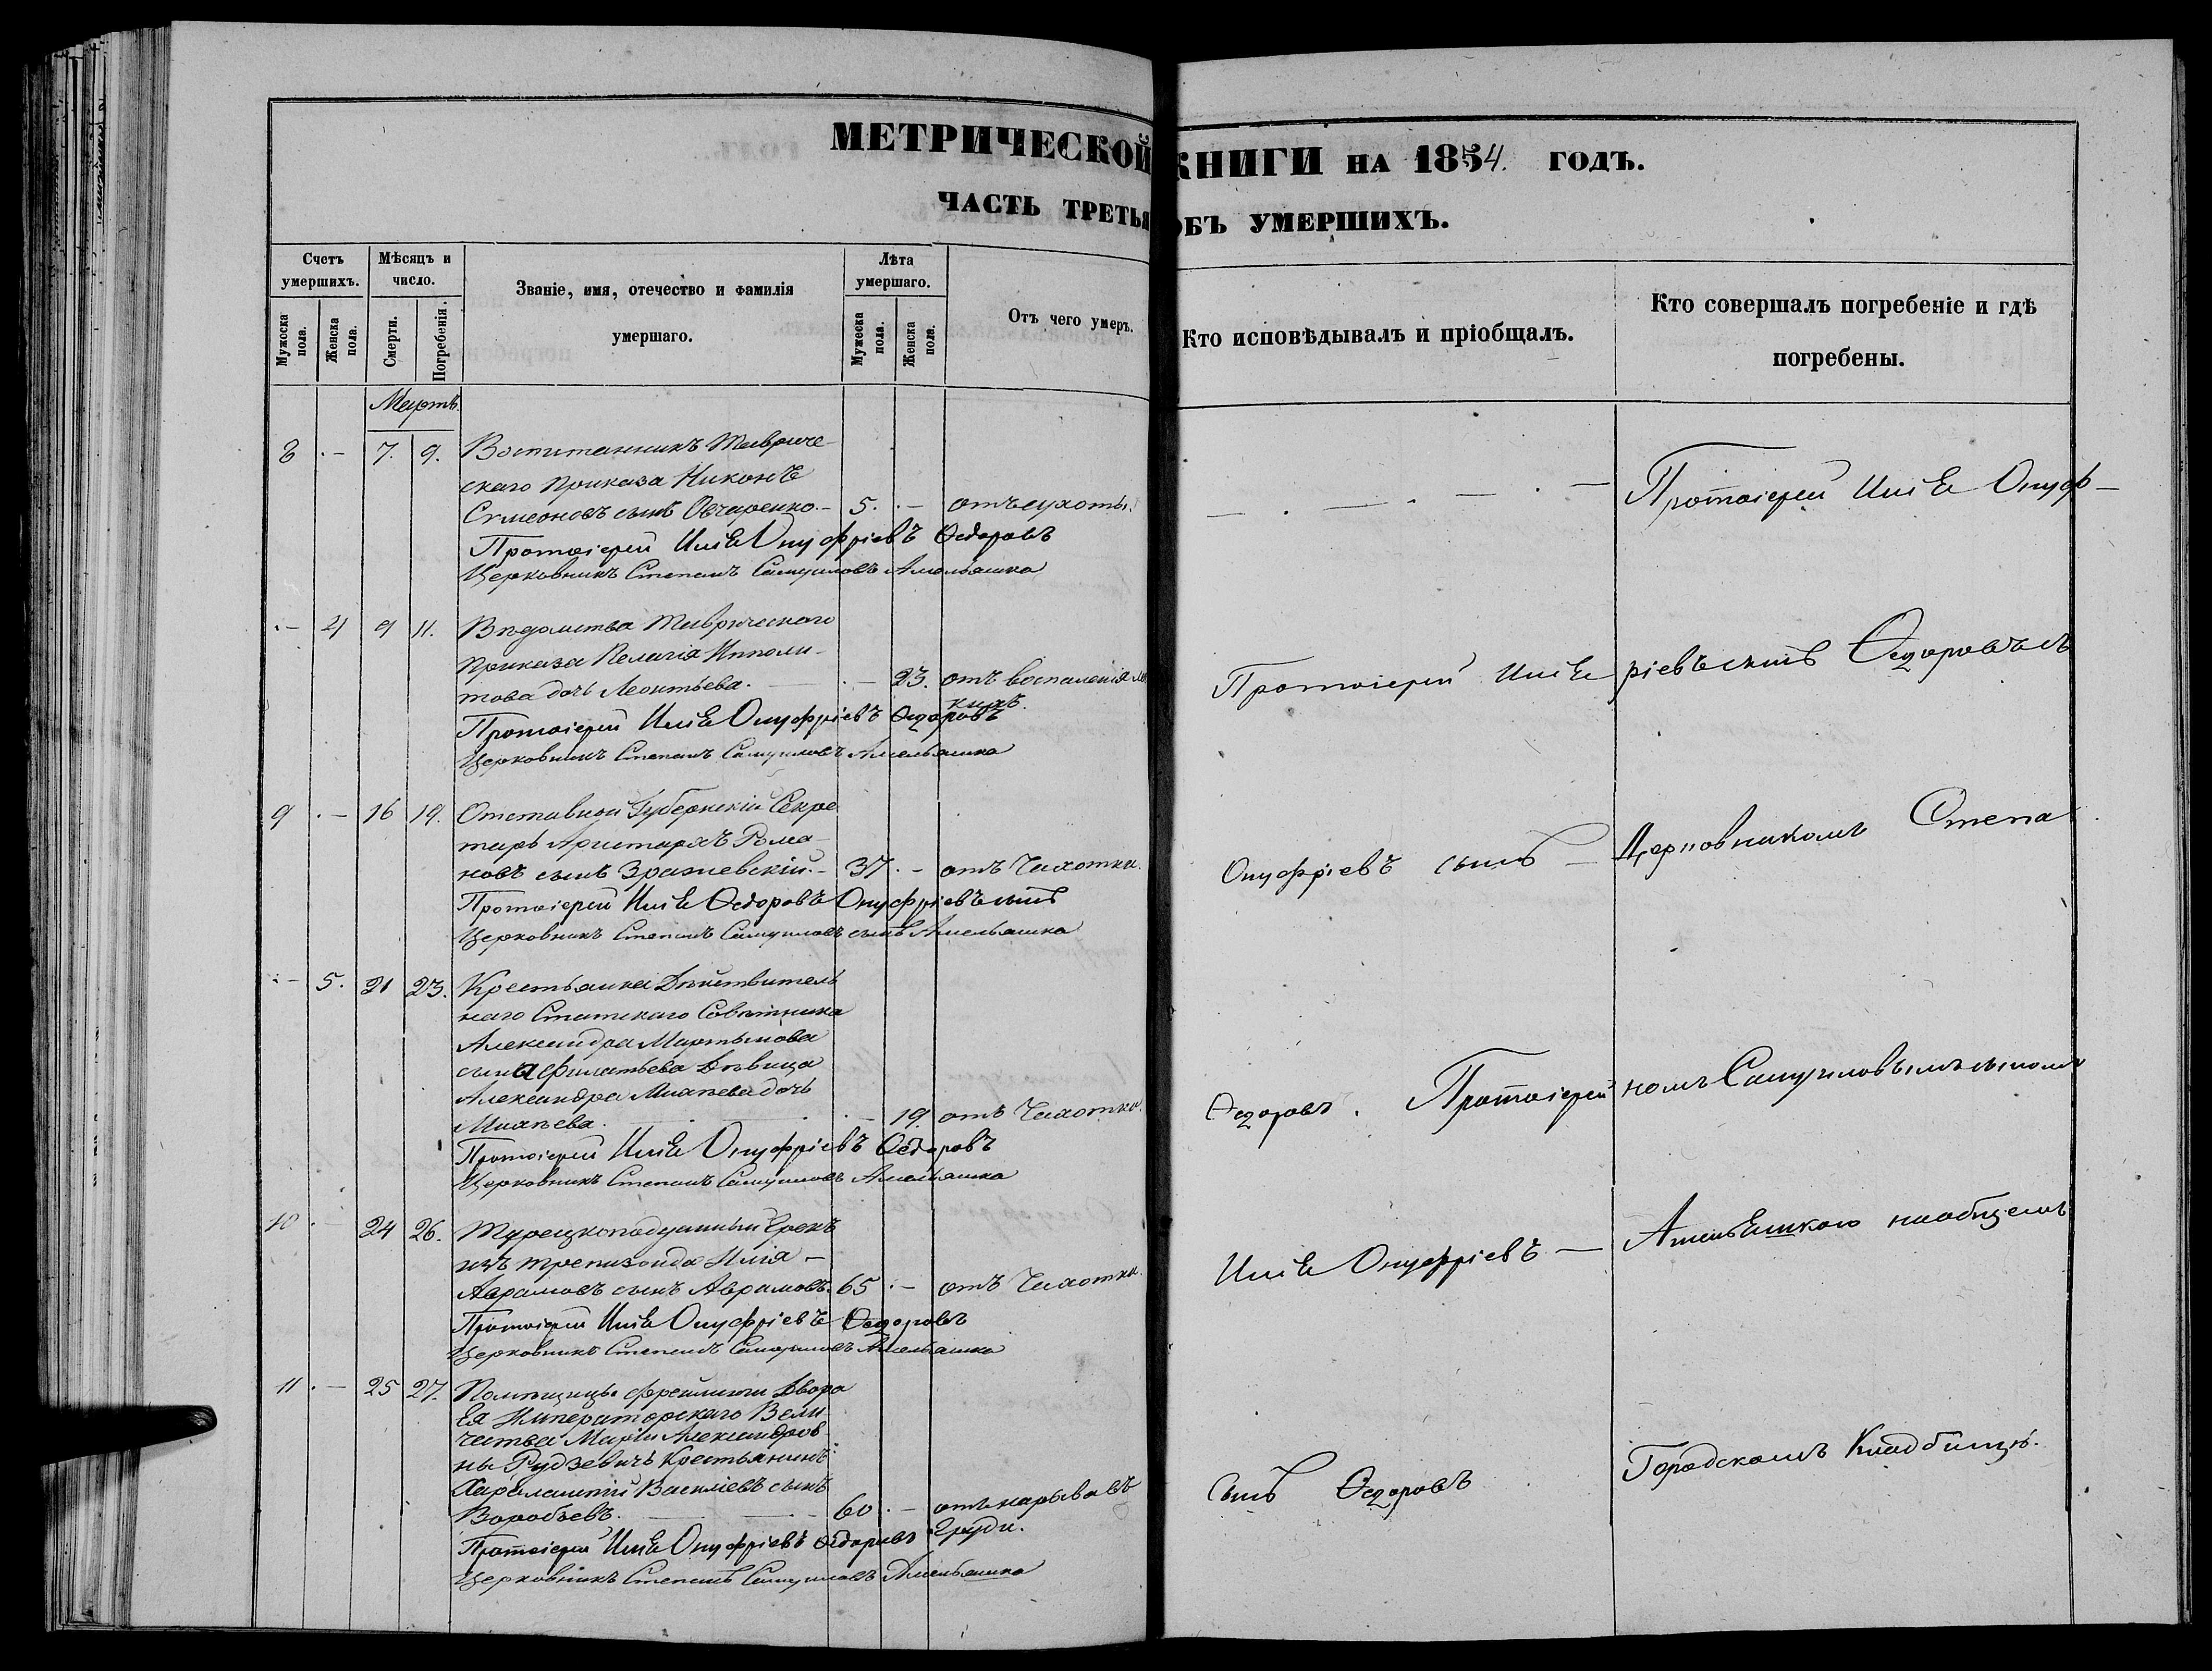 МЕТРИЧЕСКОЙ КНИГИ НА 1854. ГОДЪ.
ЧАСТЬ ТРЕТЬЯ ОБЪ УМЕРШИХЪ.
Счетъ умершихъ.
Мужеска пола.
Женска пола.
Мѣсяцъ и число.
Смерти.
Погребенія.
Званіе, имя, отечество и фамилія
умершаго.
Лѣта умершаго.
Мужеска пола.
Женска пола.
Отъ чего умеръ.
Кто исповѣдывалъ и пріобщалъ.
Кто совершалъ погребеніе и гдѣ
погребены.
Мартъ.
8 .- 7. 9. Воспитанникъ Тавриче-
скаго Приказа Никонъ
Симеоновъ сынъ Овчаренко.- 5. .- отъ сухоты.
Протоіерей Илія Онуфріевъ Ѳедоровъ
Церковникъ Степанъ Самуиловъ Амельяшко
.- 4 9 11. Вѣдомства Таврическаго
Приказа Пелагія Ипполи-
това дочь Леонтьева. .- 23. отъ воспаленія
Протоіерей Илія Онуфріевъ Ѳедоровъ
Церковникъ Степанъ Самуиловъ Амельяшко
9 .- 16 19. Отставной Губернскій Секре
тарь Аристархъ Рома-
новъ сынъ Зражевскій.- 37 .- отъ Чахотки.
Протоіерей Илія Ѳедоровъ Онуфріевъ сынъ
Церковникъ Степанъ Самуиловъ сынъ Амельяшко
.- 5. 21 23. Крестьянка Дѣйствитель
наго Статскаго Совѣтника
Александра Мартынова
сына Филатьева Дѣвица
Александра Михѣева дочь
Михѣева. .- 19. отъ Чахотки.
Протоіерей Илія Онуфріевъ Ѳедоровъ
Церковникъ Степанъ Самуиловъ Амельяшко
10 .- 24 26. Турецкоподданный Грекъ
изъ Трепизонда Илія -
Аврамовъ сынъ Аврамовъ. 65 .- отъ Чахотки.
Протоіерей Илія Онуфріевъ Ѳедоровъ
Церковникъ Степанъ Самуиловъ Амельяшко
11 .- 25 27. Помѣщицы фрейлины Двора
Ея Императорскаго Вели
чества Маріи Александров
ны Рудзевичъ Крестьянинъ
Харалампій Василіевъ сынъ
Воробьевъ. - 60 .- отъ нарыва въ
груди.
Протоіерей Илія Онуфріевъ Ѳедоровъ
Церковникъ Степанъ Самуиловъ Амельяшко
Протоіерей Илія
Онуфріевъ сынъ -
Ѳедоровъ. Протоіерей
Илія Онуфріевъ -
сынъ Ѳедоровъ
Протоіерей Илія Онуф-
ріевъ сынъ Ѳедоровъ съ
Церковникомъ Степа
номъ Самуиловымъ сыномъ
Амельяшкою на общемъ
Городскомъ Кладбищѣ.